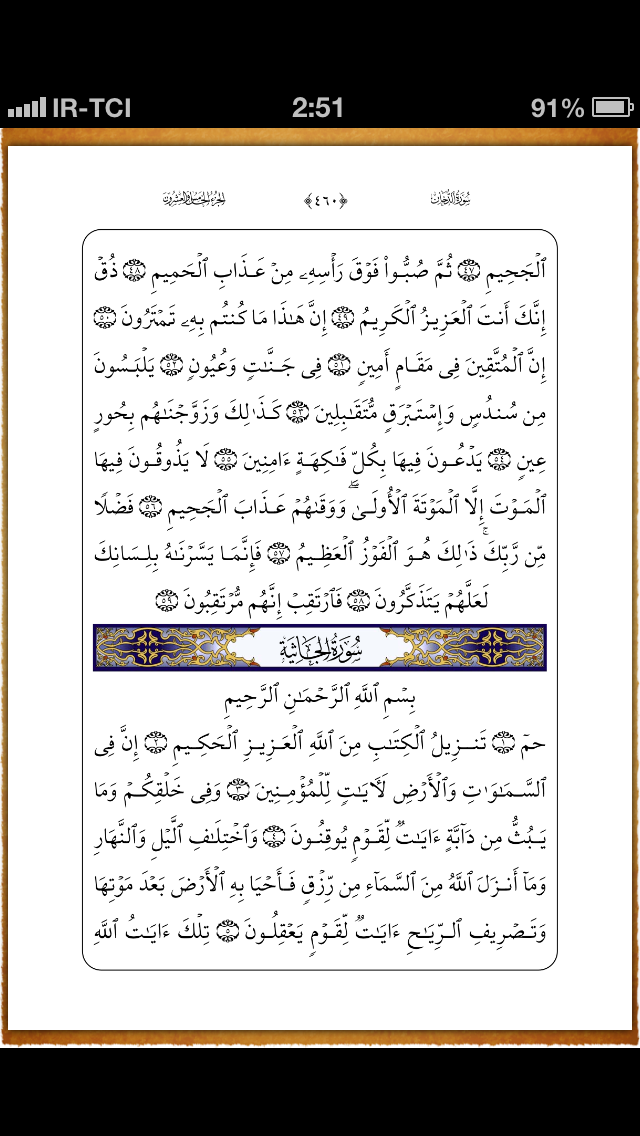 IR-TCI 2:51 91%
سُورَةُ الدُّخَانِ ﴿٤٦٠﴾ الجُزْءُ الخَامِسُ وَالعِشْرُونَ
ٱلْجَحِيمِ ٤٧ ثُمَّ صُبُّوا۟ فَوْقَ رَأْسِهِۦ مِنْ عَذَابِ ٱلْحَمِيمِ ٤٨ ذُقْ
إِنَّكَ أَنتَ ٱلْعَزِيزُ ٱلْكَرِيمُ ٤٩ إِنَّ هَـٰذَا مَا كُنتُم بِهِۦ تَمْتَرُونَ ٥٠
إِنَّ ٱلْمُتَّقِينَ فِى مَقَامٍ أَمِينٍ ٥١ فِى جَنَّـٰتٍ وَعُيُونٍ ٥٢ يَلْبَسُونَ
مِن سُندُسٍ وَإِسْتَبْرَقٍ مُّتَقَـٰبِلِينَ ٥٣ كَذَٰلِكَ وَزَوَّجْنَـٰهُم بِحُورٍ
عِينٍ ٥٤ يَدْعُونَ فِيهَا بِكُلِّ فَـٰكِهَةٍ ءَامِنِينَ ٥٥ لَا يَذُوقُونَ فِيهَا
ٱلْمَوْتَ إِلَّا ٱلْمَوْتَةَ ٱلْأُولَىٰ ۖ وَوَقَىٰهُمْ عَذَابَ ٱلْجَحِيمِ ٥٦ فَضْلًا
مِّن رَّبِّكَ ۚ ذَٰلِكَ هُوَ ٱلْفَوْزُ ٱلْعَظِيمُ ٥٧ فَإِنَّمَا يَسَّرْنَـٰهُ بِلِسَانِكَ
لَعَلَّهُمْ يَتَذَكَّرُونَ ٥٨ فَٱرْتَقِبْ إِنَّهُم مُّرْتَقِبُونَ ٥٩
سُورَةُ الجَاثِيَةِ
بِسْمِ ٱللَّهِ ٱلرَّحْمَـٰنِ ٱلرَّحِيمِ
حمٓ ١ تَنزِيلُ ٱلْكِتَـٰبِ مِنَ ٱللَّهِ ٱلْعَزِيزِ ٱلْحَكِيمِ ٢ إِنَّ فِى
ٱلسَّمَـٰوَٰتِ وَٱلْأَرْضِ لَـَٔايَـٰتٍ لِّلْمُؤْمِنِينَ ٣ وَفِى خَلْقِكُمْ وَمَا
يَبُثُّ مِن دَآبَّةٍ ءَايَـٰتٌ لِّقَوْمٍ يُوقِنُونَ ٤ وَٱخْتِلَـٰفِ ٱلَّيْلِ وَٱلنَّهَارِ
وَمَآ أَنزَلَ ٱللَّهُ مِنَ ٱلسَّمَآءِ مِن رِّزْقٍ فَأَحْيَا بِهِ ٱلْأَرْضَ بَعْدَ مَوْتِهَا
وَتَصْرِيفِ ٱلرِّيَـٰحِ ءَايَـٰتٌ لِّقَوْمٍ يَعْقِلُونَ ٥ تِلْكَ ءَايَـٰتُ ٱللَّهِ